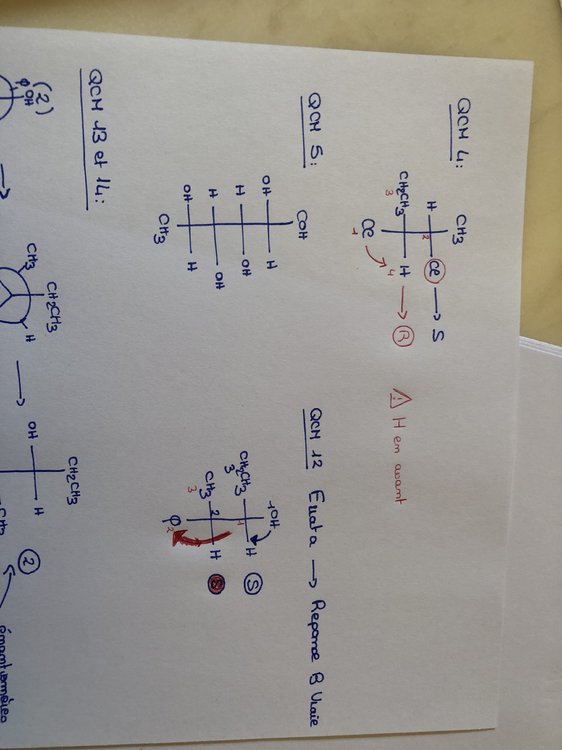 QCM 4:
CH3
H
2
Cl
→ S
CH2CH3
3
H
4
→ R
Cl
1
⚠ H en avant
QCM 5:
COH
OH
H
H
OH
H
OH
OH
H
CH3
QCM 12 Errata → Reponse B Vraie
1OH
CH2CH3
3
1
H
S
CH3
3
2
H
φ
2
QCM 13 et 14:
(2)
OH
φ
→
CH3
CH2CH3
H
→
CH2CH3
OH
H
CH3
2
énantiomères